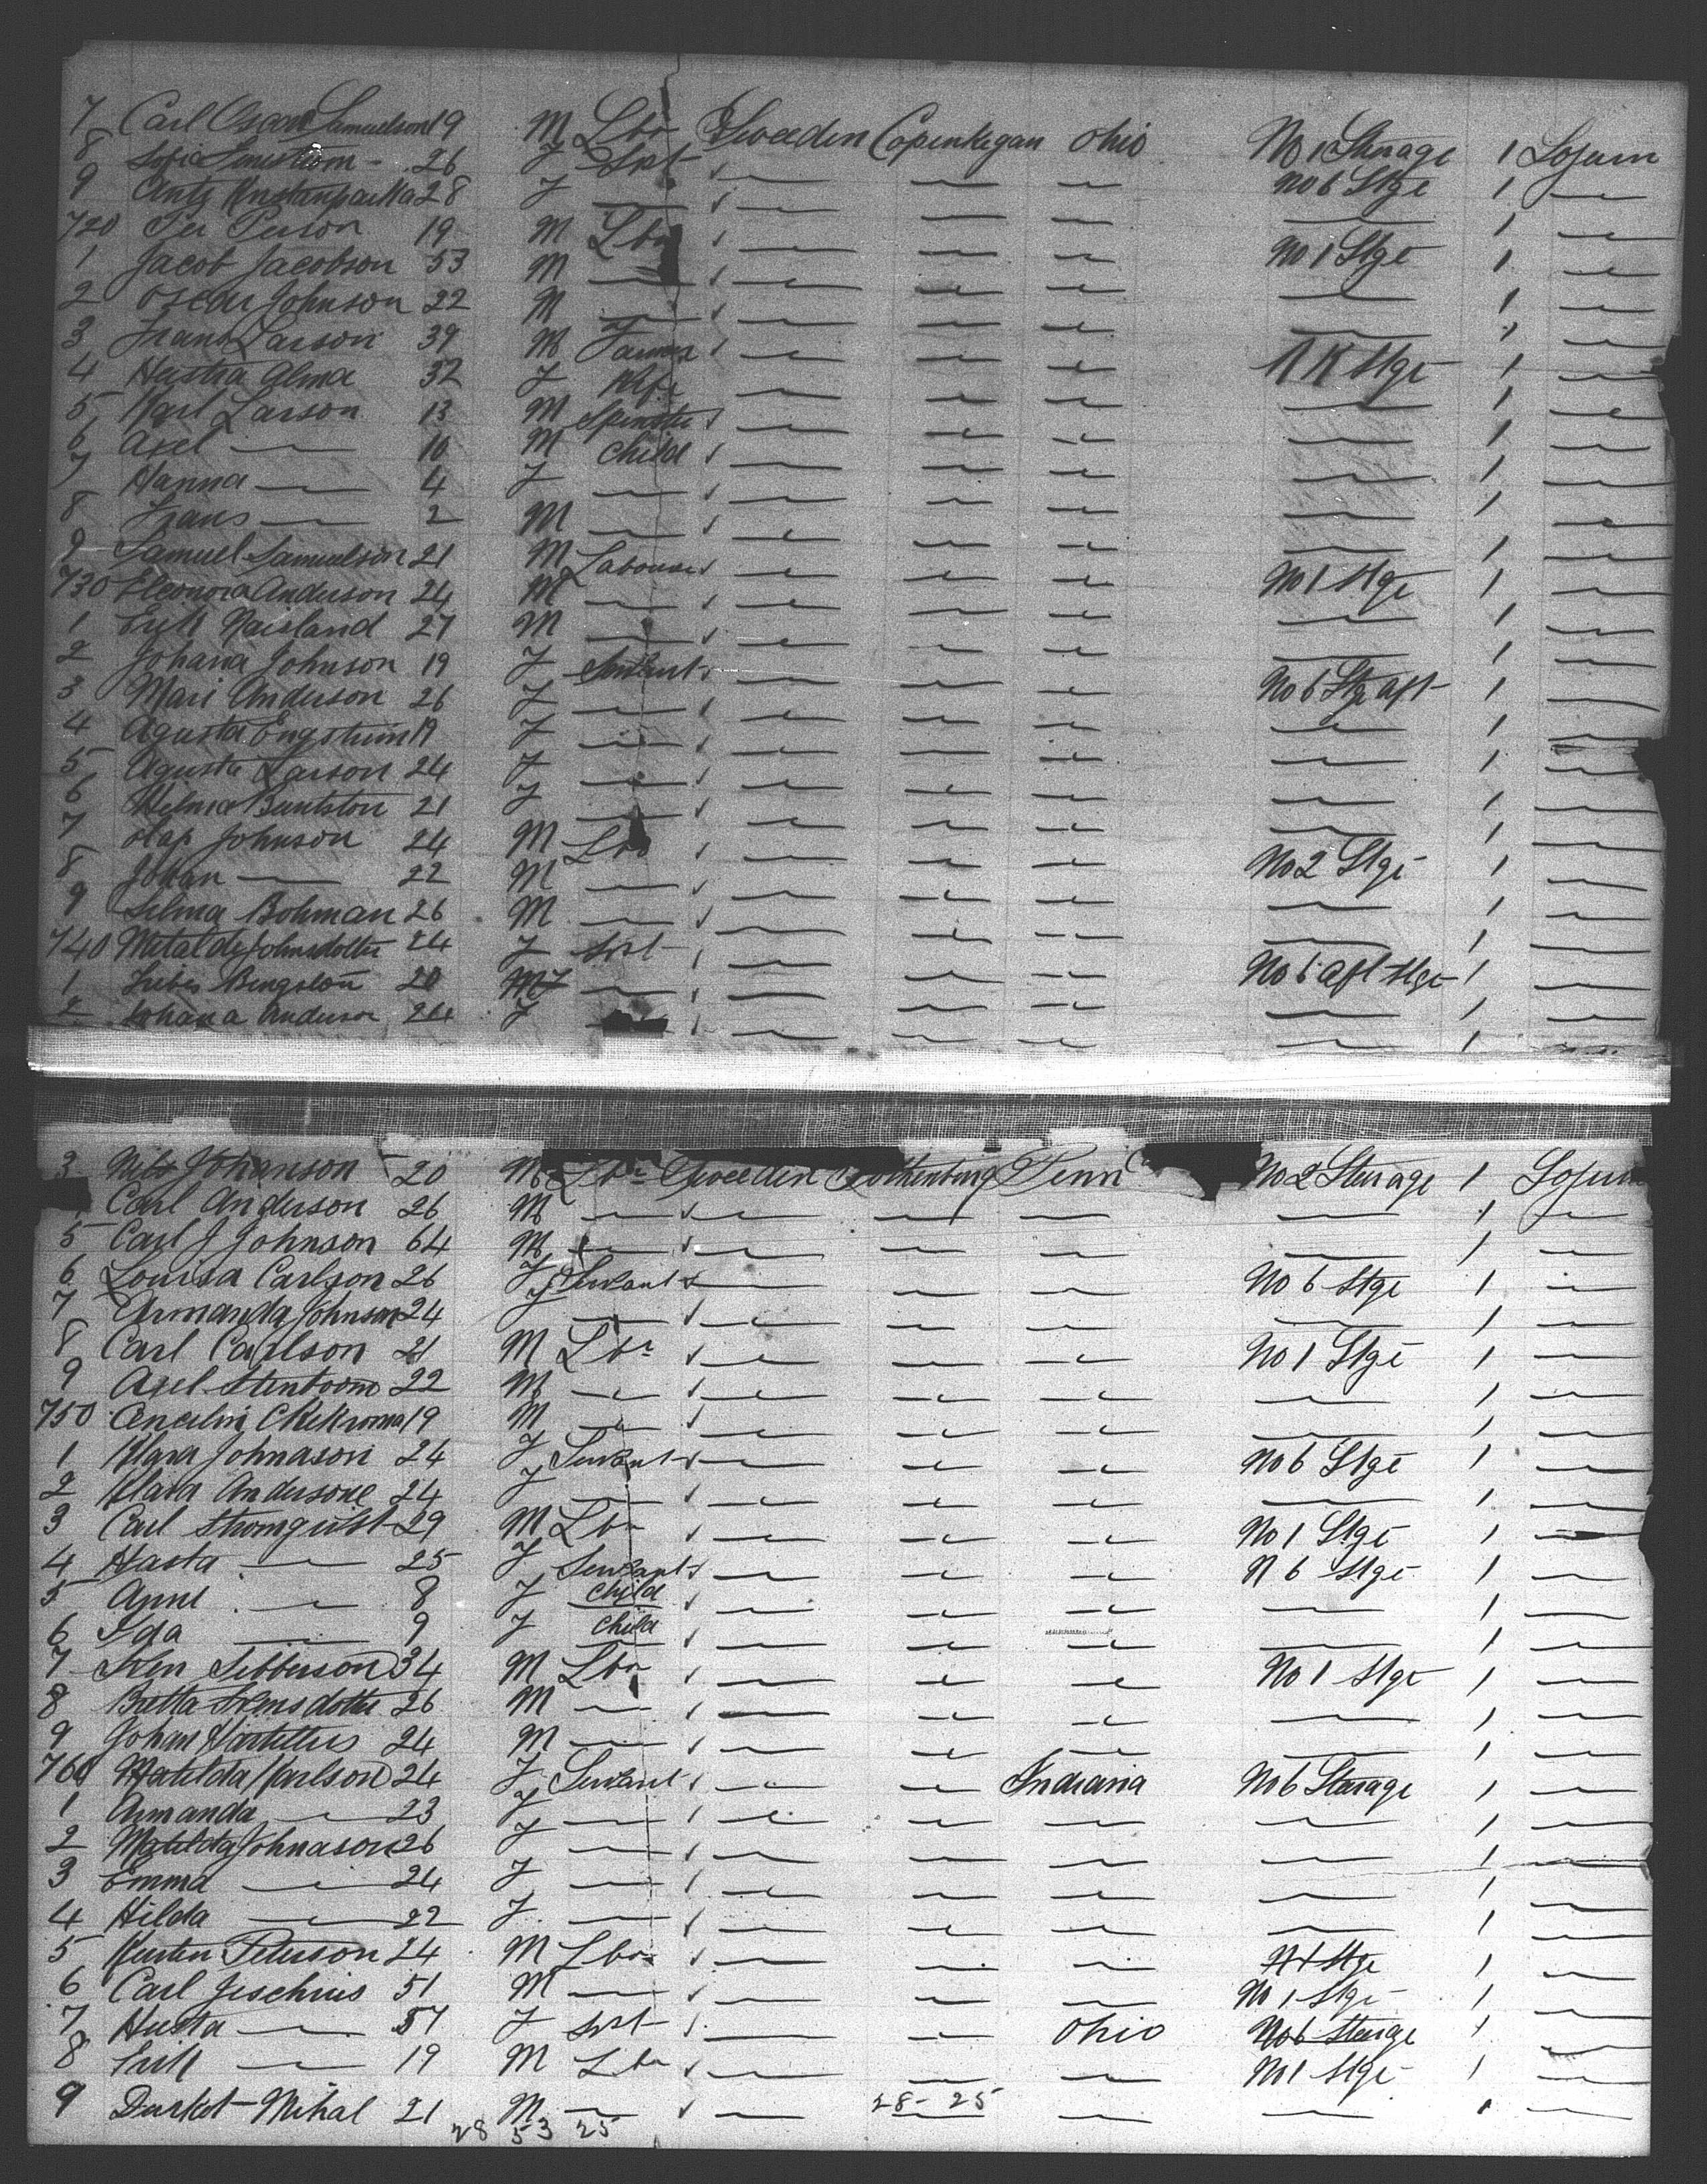 7 Carl Oscar Samuelson 19 M Lbr Sweeden Copenhegan Ohio No 1 Sterage 1 Sojurn
8 Sofia 26 F Srt No 6 Stge 1
9 28 F 1
720 Per Person 19 M Lbr No 1 Stge 1
1 Jacob Jacobson 53 M 1
2 Oscar Johnson 22 M 1
3 Frans Larson 39 M Farmer Stge 1
4 Hustra Alma 32 F Wife 1
5 Karl Larson 13 M Spinster 1
6 Axel 10 M Child 1
7 Hanna 4 F 1
8 Frans 2 M 1
9 Samuel Samuelson 21 M Labourer No 1 Stge 1
730 Eleonora Anderson 24 M 1
1 Erik Naisland 27 M 1
2 Johana Johnson 19 F Servant No 6 Stge aft 1
3 Mari Anderson 26 F 1
4 Agusta Engstrum 19 F 1
5 Agusta Larson 24 F 1
6 Helma 21 F 1
7 Olaf Johnson 24 M Lbr No 2 Stge 1
8 Johan 22 M 1
9 Selma Bohman 26 M 1
740 Johnsdotter 24 F Srt No 6 aft Stge 1
1 Bengston 20 F 1
2 Johana Anderson 24 F 1
3 Nils Johanson 20 M Lbr Sweeden Gothenburg Penn No 2 Sterage 1 Sojurn
Carl Anderson 26 M 1
5 Carl J Johnson 64 M 1
6 Louisa Carlson 26 F Servant No 6 Stge 1
7 Armanda Johnson 24 F 1
8 Carl Carlson 21 M Lbr No 1 Stge 1
9 Axel Stentroom 22 M 1
750 19 M 1
1 Klara Johnason 24 F Servant No 6 Stge 1
2 Klara Andersone 24 F 1
3 Carl Stromquist 29 M Lbr No 1 Stge 1
4 Hasta 25 F Servant N 6 Stge 1
5 Anne 8 F Child 1
6 Ida 9 F Child 1
7 Sven Sibberson 34 M Lbr No 1 Stge 1
8 Britta Svensdotter 26 M 1
9 Johan 24 M 1
760 Matilda Karlson 24 F Servant Indiana No 6 Sterage 1
1 Amanda 23 F 1
2 Matilda Johnason 26 F 1
3 Emma 24 F 1
4 Hilda 22 F 1
5 Kersten Peterson 24 M Lbr Stge 1
6 Carl Jeschius 51 M No 1 Stge 1
7 Husta 57 F Srt Ohio No 6 Sterage 1
8 Erik 19 M Lbr No 1 Stge 1
9 Durkot Mihal 21 M 28-25 1
28 53 25